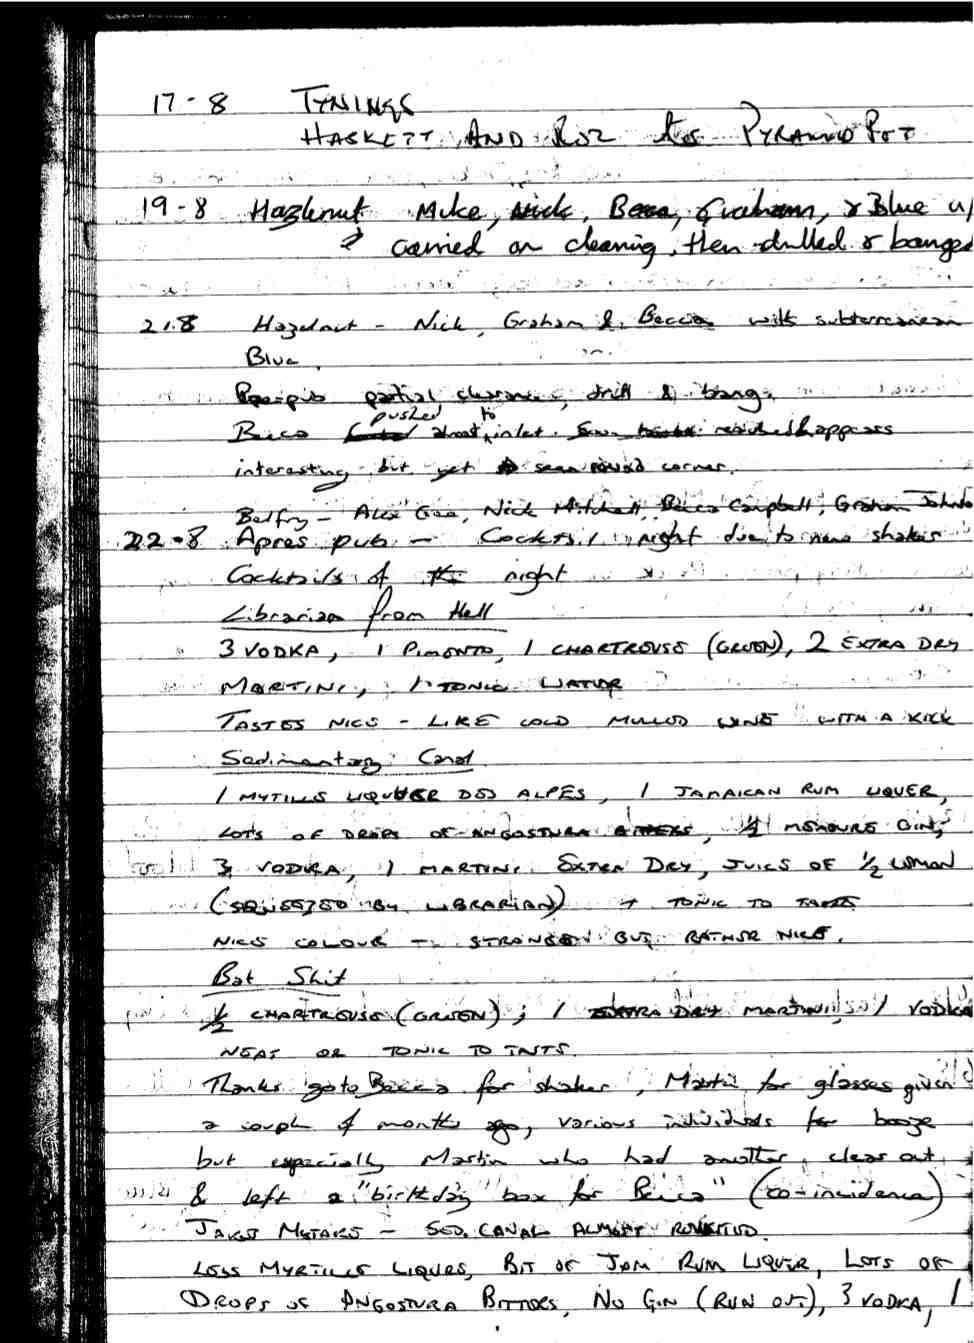 17-8 TYNINGS
HASKETT AND ROZ to PYRAMID POT
19-8 Hazlenut Mike, Nick, Becca, Graham, & Blue u/
carried on cleaning, then drilled & banged
21.8 Hazelnut - Nick, Graham & Becca with subterranean
Blue.
partial clearance, drill & bang.
Becca pushed almost to inlet. reached & appears
interesting but yet seen round corner.
Belfry - Alex Gee, Nick Mitchell, Becca Campbell, Graham Johnson
22-8 Apres pub - Cocktail night due to new shaker
Cocktails of the night
Librarian from Hell
3 VODKA, 1 PIMONTO, 1 CHARTREUSE (GREEN), 2 EXTRA DRY
MARTINI, 1 TONIC WATER
TASTES NICE - LIKE COLD MULLED WINE WITH A KICK
Sedimentary Canal
1 MYTILLE LIQUEUR DES ALPES, 1 JAMAICAN RUM LIQUER,
LOTS OF DROPS OF ANGOSTURA BITTERS, ½ MEASURE GIN,
3 VODKA, 1 MARTINI EXTRA DRY, JUICE OF ½ LEMON
(SQUEEZED BY LIBRARIAN) + TONIC TO TASTE
NICE COLOUR - STRONG BUT RATHER NICE.
Bat Shit
½ CHARTREUSE (GREEN), 1 EXTRA DRY MARTINI, 1 VODKA
NEAT OR TONIC TO TASTE.
Thanks go to Becca for shaker, Martin for glasses given
a couple of months ago, various individuals for booze
but especially Martin who had another clear out
& left a "birthday box for Becca" (co-incidence)
SED. CANAL ALMOST REVISITED.
LESS MYRTILLE LIQUER, BIT OF JAM RUM LIQUER, LOTS OF
DROPS OF ANGOSTURA BITTERS, NO GIN (RUN OUT), 3 VODKA, 1